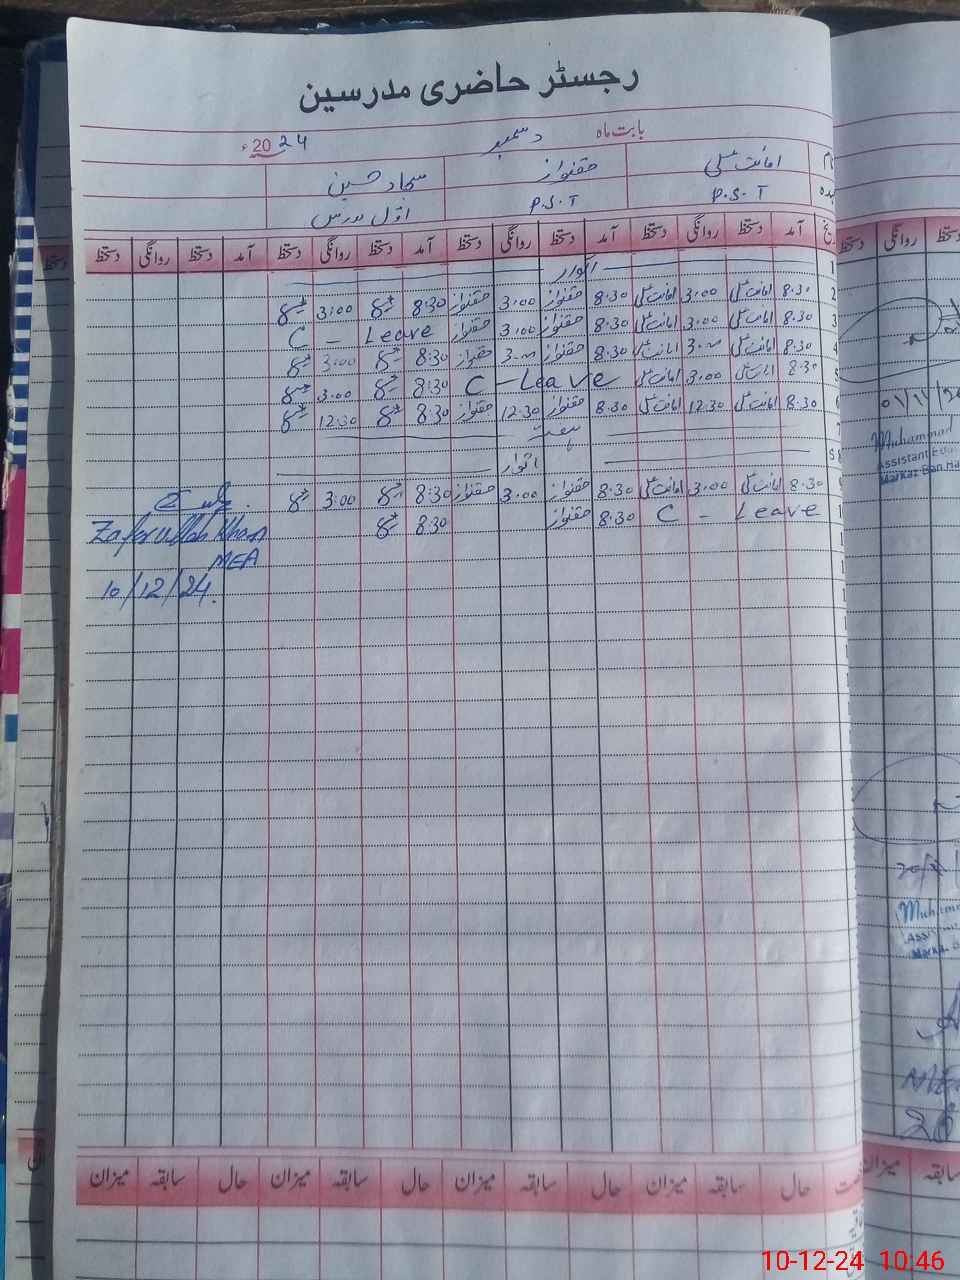 رجسٹر حاضری مدرسین
بابت ماہ دسمبر 2024ء
امانت علی حقنواز سجاد حسین
P.S.T P.S.T اوّل مدرس
آمد دستخط روانگی دستخط آمد دستخط روانگی دستخط آمد دستخط روانگی دستخط آمد دستخط روانگی دستخط
1 اتوار
2 8:30 امانت علی 3:00 امانت علی 8:30 حقنواز 3:00 حقنواز 8:30 3:00
3 8:30 امانت علی 3:00 امانت علی 8:30 حقنواز 3:00 حقنواز C - Leave
4 8:30 امانت علی 3:00 امانت علی 8:30 حقنواز 3:00 حقنواز 8:30 3:00
5 8:30 امانت علی 3:00 امانت علی C - Leave 8:30 3:00
6 8:30 امانت علی 12:30 امانت علی 8:30 حقنواز 12:30 حقنواز 8:30 12:30
7 ہفتہ
8 اتوار
8:30 امانت علی 3:00 امانت علی 8:30 حقنواز 3:00 حقنواز 8:30 3:00
C - Leave 8:30 حقنواز 8:30
Zafarullah Khan
MEA
10/12/24.
حال سابقہ میزان حال سابقہ میزان حال سابقہ میزان حال سابقہ میزان
دستخط روانگی
Muhammad
Assistant
Markaz
میزان سابقہ
10-12-24 10:46